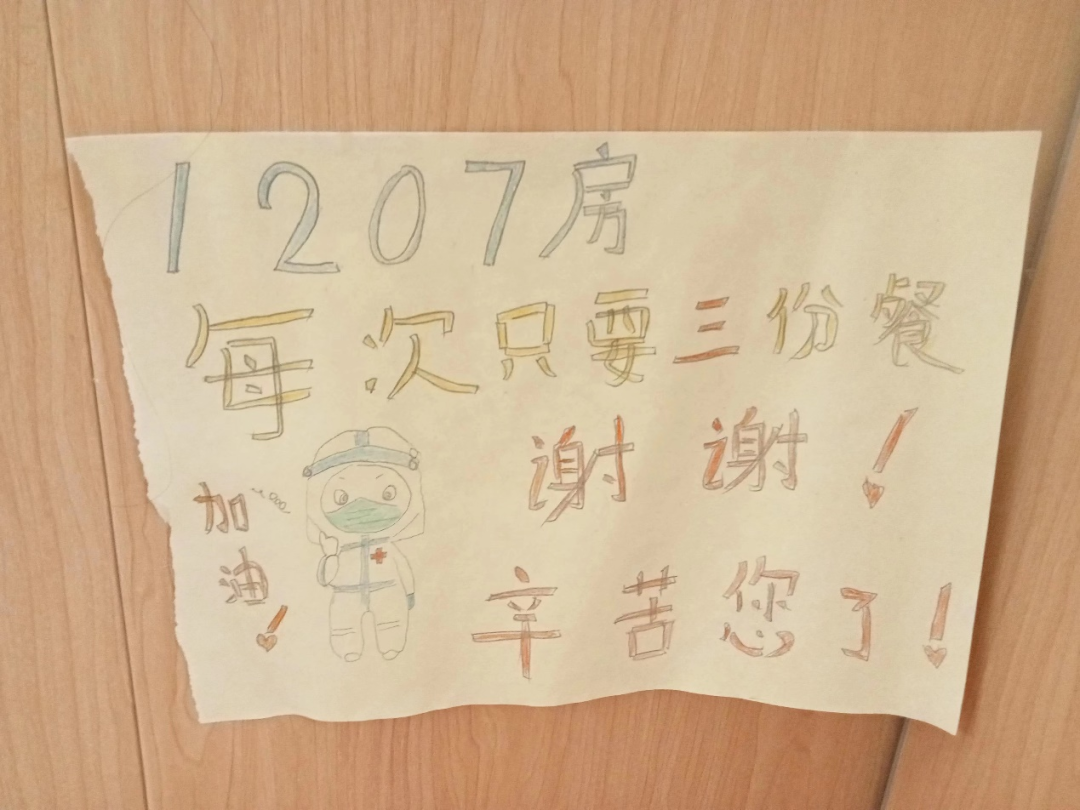 1207房
每次只要三份餐
谢谢！
加油！
辛苦您了！